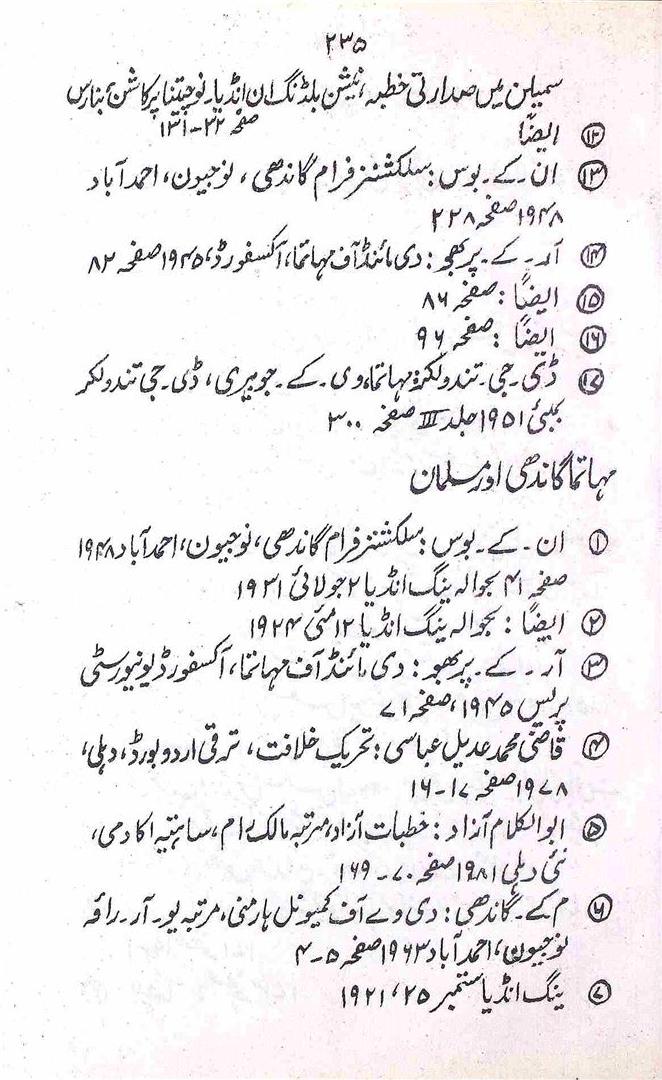 ۲۳۵
سمیلن میں صدارتی خطبہ، نیشن بلڈنگ ان انڈیا۔ نوچیتنا پرکاشن، بنارس
صفحہ ۲۲-۱۳۱
⑫ ایضاً
⑬ ان۔ کے۔ بوس: سلکشنز فرام گاندھی، نوجیون، احمد آباد
۱۹۴۸ صفحہ ۲۲۸
⑭ آر۔ کے۔ پربھو: دی مائنڈ آف مہاتما، آکسفورڈ، ۱۹۴۵ صفحہ ۸۲
⑮ ایضاً: صفحہ ۸۶
⑯ ایضاً: صفحہ ۹۶
⑰ ڈی۔ جی۔ تندولکر: مہاتما، وی۔ کے۔ جویری، ڈی۔ جی تندولکر
بمبئی ۱۹۵۱ جلد III صفحہ ۳۰۰
مہاتما گاندھی اور مسلمان
① ان۔ کے۔ بوس: سلکشنز فرام گاندھی، نوجیون، احمد آباد ۱۹۴۸
صفحہ ۴۱ بحوالہ ینگ انڈیا ۲ جولائی ۱۹۳۱
② ایضاً: بحوالہ ینگ انڈیا ۱۲ مئی ۱۹۲۴
③ آر۔ کے۔ پربھو: دی مائنڈ آف مہاتما، آکسفورڈ یونیورسٹی
پریس ۱۹۴۵، صفحہ ۷۱
④ قاضی محمد عدیل عباسی: تحریک خلافت، ترقی اردو بورڈ، دہلی،
۱۹۷۸ صفحہ ۱۷-۱۶
⑤ ابوالکلام آزاد: خطبات آزاد، مرتبہ مالک رام، ساہتیہ اکادمی،
نئی دہلی ۱۹۸۱ صفحہ ۷۰-۱۶۹
⑥ م کے۔ گاندھی: دی وے آف کمیونل ہارمنی، مرتبہ یو۔ آر۔ راؤ
نوجیون، احمد آباد ۱۹۶۳ صفحہ ۵-۴
⑦ ینگ انڈیا ستمبر ۲۵، ۱۹۲۱